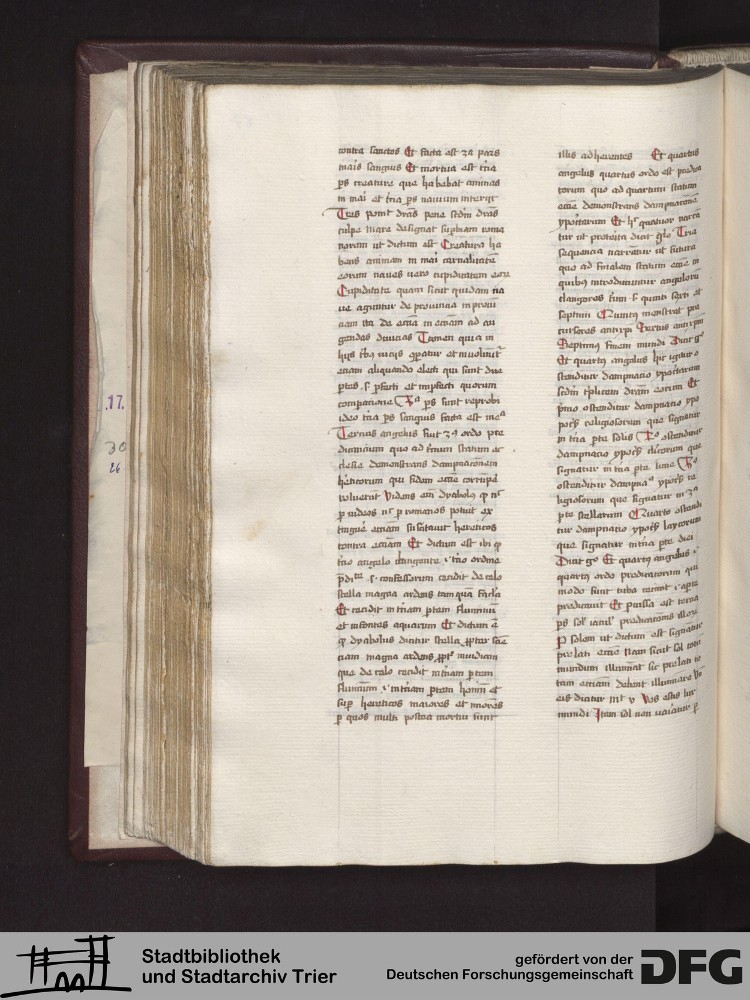 contra sanctos Et facta est 3a pars
maris sanguis Et mortua est tria
ps creature que habebat animas
in mari et tria ps navium interiit
Tres ponit dras pene scdm dras
culpe Mare designat supbiam roma
norum ut dictum est Creatura ha
bens animam in mari carnalitatem
eorum naves vero cupiditatem eorum
Cupiditate quam sicut quidam na
ve aguntur de provincia in provin
ciam ita de eccia in ecciam ad con
gendas divicias Tamen quia in
etiam aliquando electi qui sunt due
ptes s pfecti et impfecti quorum
comparatione 3a ps sunt reprobi
ideo tria ps sanguis facta est mea
Tercius angelus fuit 3us ordo pre
dicancium quo ad statum ec
clesie demonstrans dampnacionem
hereticorum qui fidem eccie corrumpe
voluerunt Videns eni dyabolus q nec
p iudeos nec p romanos potuit ex
tinguere ecciam suscitavit hereticos
contra ecciam Et dictum est ibi q
tercio angelo clangente i tercio ordine
s confessorum cecidit de celo
stella magna ardens tamquam facula
Et cecidit in triam ptem fluminum
et in fontes aquarum Et dictum e
q dyabolus dicitur stella ppter scie
ciam magna ardens invidiam
que de celo cecidit in triam ptem
fluminum i in triam ptem hominum et
sup hereticos maiores et minores
p quos multi postea mortui sunt
illis adherentes Et quartus
angelus quartus ordo est predica
torum quo ad quartum statum
eccie demonstrans dampnacionem
ypocritarum Et hic quatuor narra
tur ut propheta dicit Tria
sequencia narrantur ut futura
quo ad finalem statum eccie in
quibus introducuntur angelorum
clangores trium s quinti sexti et
septimi Quintus monstrat pre
cursores antixpi Sextus antixpm
Septimus finem mundi Dicit go
Et quartus angelus hic igitur o
stenditur dampnacio ypocritarum
scdm triplicem dram eorum Et
primo ostenditur dampnacio ypo
religiosorum que signatur
in tria pte solis 2o ostenditur
dampnacio clericorum que
signatur in tria pte lune 3o
ostenditur dampnacio re
ligiosorum que signatur in 3a
pte stellarum Quarto ostendi
tur dampnacio laycorum
que signatur in tria pte diei
Dicit go Et quartus angelus i
quartus ordo predicatorum qui
modo sunt tuba cecinit i apte
predicavit Et percussa est tercia
ps solis
p solem ut dictum est signantur
prelati eccie Nam sicut sol totum
mundum illuminat sic prelati to
tam ecciam debent illuminare Un
eis dicitur mt v Vos estis lux
mundi Item sol non p
.17.
30
26
Stadtbibliothek
und Stadtarchiv Trier
gefördert von der
Deutschen Forschungsgemeinschaft
DFG